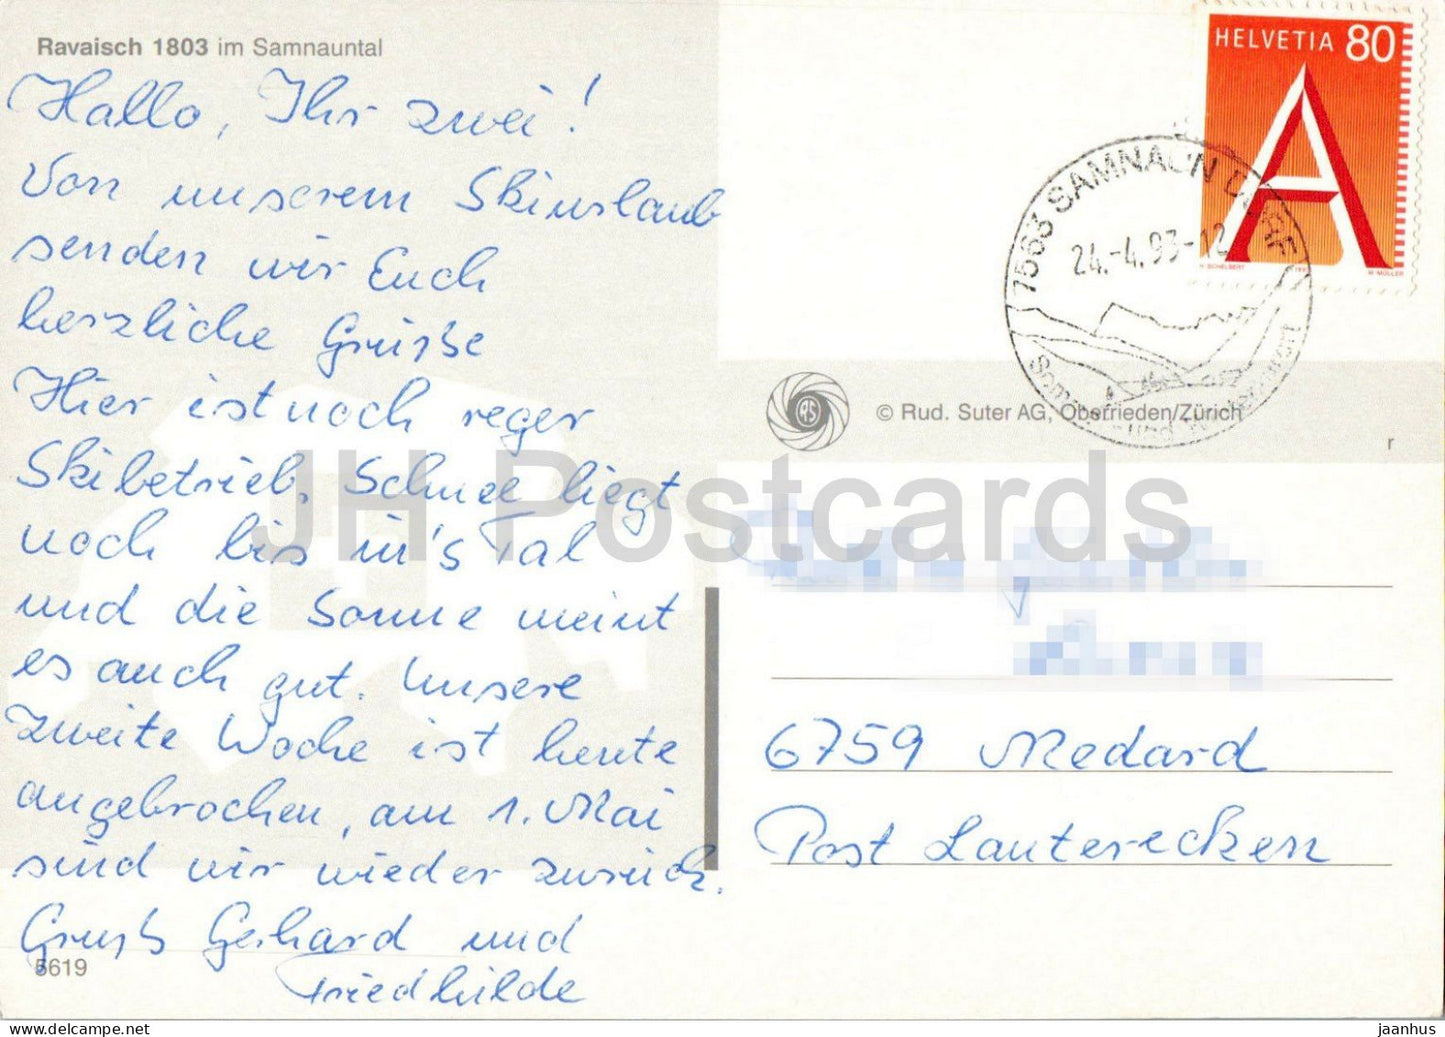 Ravaisch 1803 im Samnauntal
Hallo, Ihr zwei!
Von unserem Skiurlaub
senden wir Euch
herzliche Grüße
Hier ist noch reger
Skibetrieb. Schnee liegt
noch bis in's Tal
und die Sonne meint
es auch gut. Unsere
zweite Woche ist heute
angebrochen, am 1. Mai
sind wir wieder zurück.
Gruß Gerhard und
Friedhilde
5619
HELVETIA 80
A
H. SCHELBERT
M. MÜLLER
7563 SAMNAUN DORF
24.-4.93-12
Sommer- und Winterkurort
RS
© Rud. Suter AG, Oberrieden/Zürich
r
6759 Medard
Post Lauterecken
JH Postcards
jaanhus